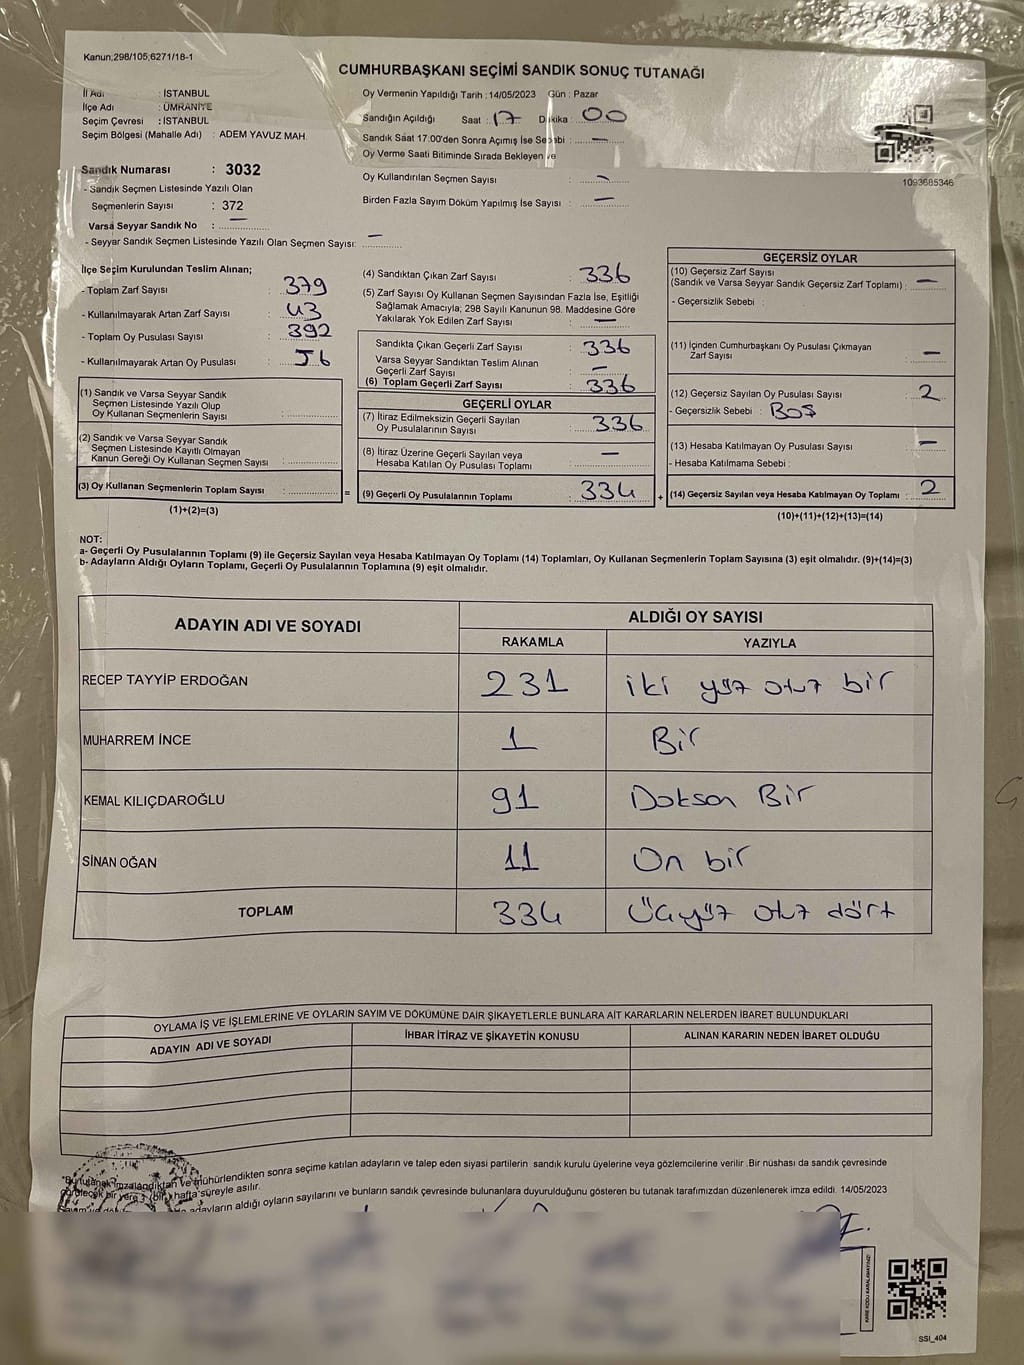 Kanun;298/105;6271/18-1
CUMHURBAŞKANI SEÇİMİ SANDIK SONUÇ TUTANAĞI
İl Adı : İSTANBUL
İlçe Adı : ÜMRANİYE
Seçim Çevresi : İSTANBUL
Seçim Bölgesi (Mahalle Adı) : ADEM YAVUZ MAH.
Oy Vermenin Yapıldığı Tarih : 14/05/2023 Gün : Pazar
Sandığın Açıldığı Saat : 17 Dakika : 00
Sandık Saat 17:00'den Sonra Açımış İse Sebebi : —
Oy Verme Saati Bitiminde Sırada Bekleyen ve
Oy Kullandırılan Seçmen Sayısı : —
Birden Fazla Sayım Döküm Yapılmış İse Sayısı : —
1093685346
Sandık Numarası : 3032
- Sandık Seçmen Listesinde Yazılı Olan
Seçmenlerin Sayısı : 372
Varsa Seyyar Sandık No : —
- Seyyar Sandık Seçmen Listesinde Yazılı Olan Seçmen Sayısı: —
İlçe Seçim Kurulundan Teslim Alınan;
- Toplam Zarf Sayısı : 379
- Kullanılmayarak Artan Zarf Sayısı : 43
- Toplam Oy Pusulası Sayısı : 392
- Kullanılmayarak Artan Oy Pusulası : 56
(1) Sandık ve Varsa Seyyar Sandık
Seçmen Listesinde Yazılı Olup
Oy Kullanan Seçmenlerin Sayısı :
(2) Sandık ve Varsa Seyyar Sandık
Seçmen Listesinde Kayıtlı Olmayan
Kanun Gereği Oy Kullanan Seçmen Sayısı :
(3) Oy Kullanan Seçmenlerin Toplam Sayısı : =
(1)+(2)=(3)
(4) Sandıktan Çıkan Zarf Sayısı : 336
(5) Zarf Sayısı Oy Kullanan Seçmen Sayısından Fazla İse, Eşitliği
Sağlamak Amacıyla; 298 Sayılı Kanunun 98. Maddesine Göre
Yakılarak Yok Edilen Zarf Sayısı : —
Sandıkta Çıkan Geçerli Zarf Sayısı : 336
Varsa Seyyar Sandıktan Teslim Alınan
Geçerli Zarf Sayısı : —
(6) Toplam Geçerli Zarf Sayısı : 336
GEÇERLİ OYLAR
(7) İtiraz Edilmeksizin Geçerli Sayılan
Oy Pusulalarının Sayısı : 336
(8) İtiraz Üzerine Geçerli Sayılan veya
Hesaba Katılan Oy Pusulası Toplamı : —
(9) Geçerli Oy Pusulalarının Toplamı : 334 +
GEÇERSİZ OYLAR
(10) Geçersiz Zarf Sayısı
(Sandık ve Varsa Seyyar Sandık Geçersiz Zarf Toplamı) : —
- Geçersizlik Sebebi :
(11) İçinden Cumhurbaşkanı Oy Pusulası Çıkmayan
Zarf Sayısı : —
(12) Geçersiz Sayılan Oy Pusulası Sayısı : 2
- Geçersizlik Sebebi : BOŞ
(13) Hesaba Katılmayan Oy Pusulası Sayısı : —
- Hesaba Katılmama Sebebi :
(14) Geçersiz Sayılan veya Hesaba Katılmayan Oy Toplamı : 2
(10)+(11)+(12)+(13)=(14)
NOT:
a- Geçerli Oy Pusulalarının Toplamı (9) ile Geçersiz Sayılan veya Hesaba Katılmayan Oy Toplamı (14) Toplamları, Oy Kullanan Seçmenlerin Toplam Sayısına (3) eşit olmalıdır. (9)+(14)=(3)
b- Adayların Aldığı Oyların Toplamı, Geçerli Oy Pusulalarının Toplamına (9) eşit olmalıdır.
ADAYIN ADI VE SOYADI ALDIĞI OY SAYISI
RAKAMLA YAZIYLA
RECEP TAYYİP ERDOĞAN 231 iki yüz otuz bir
MUHARREM İNCE 1 Bir
KEMAL KILIÇDAROĞLU 91 Doksan Bir
SİNAN OĞAN 11 On bir
TOPLAM 334 Üçyüz otuz dört
OYLAMA İŞ VE İŞLEMLERİNE VE OYLARIN SAYIM VE DÖKÜMÜNE DAİR ŞİKAYETLERLE BUNLARA AİT KARARLARIN NELERDEN İBARET BULUNDUKLARI
ADAYIN ADI VE SOYADI İHBAR İTİRAZ VE ŞİKAYETİN KONUSU ALINAN KARARIN NEDEN İBARET OLDUĞU
"Bu tutanak imzalandıktan ve mühürlendikten sonra seçime katılan adayların ve talep eden siyasi partilerin sandık kurulu üyelerine veya gözlemcilerine verilir. Bir nüshası da sandık çevresinde
görülecek bir yere 1 (bir) hafta süreyle asılır.
adayların aldığı oyların sayılarını ve bunların sandık çevresinde bulunanlara duyurulduğunu gösteren bu tutanak tarafımızdan düzenlenerek imza edildi. 14/05/2023
SSI_404